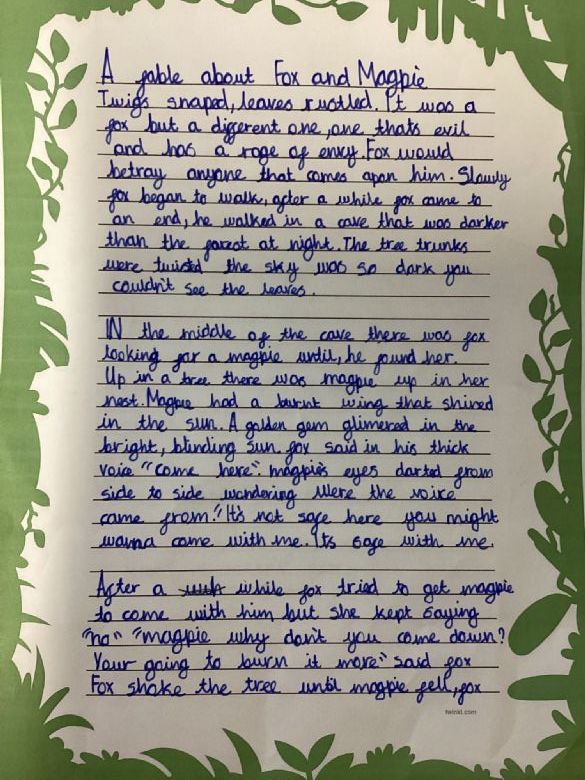 A fable about Fox and Magpie
Twigs snaped, leaves rustled. It was a
fox but a different one, one thats evil
and has a rage of envy. Fox would
betray anyone that comes apon him. Slowly
fox began to walk, after a while fox came to
an end, he walked in a cave that was darker
than the forest at night. The tree trunks
were twisted the sky was so dark you
couldn't see the leaves.
IN the middle of the cave there was fox
looking for a magpie until, he found her.
Up in a tree there was magpie up in her
nest. Magpie had a burnt wing that shined
in the sun. A golden gem glimered in the
bright, blinding sun. fox said in his thick
voice "come here". magpie's eyes darted from
side to side wondering were the voice
came from." It's not safe here you might
wanna come with me. Its safe with me.
After a while fox tried to get magpie
to come with him but she kept saying
"no" "magpie why don't you come down?
Your going to burn it more" said fox
Fox shoke the tree until magpie fell, fox
twinkl.com